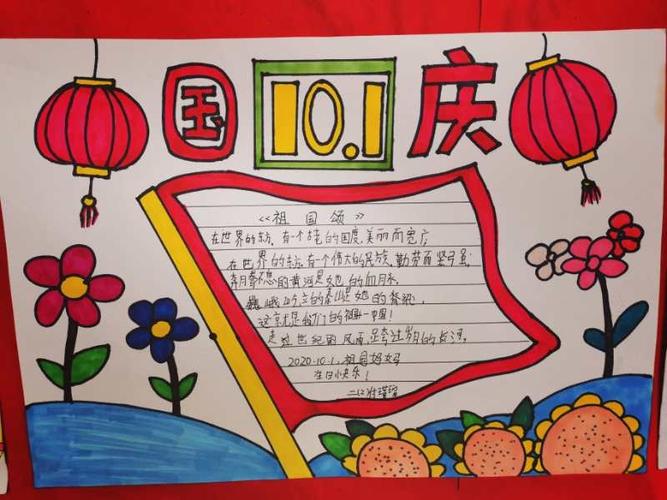 国 10.1 庆
《祖国颂》
在世界的东方,有一个古老的国度,美丽而宽广
在世界的东方,有一个伟大的民族,勤劳而坚强
奔腾不息的黄河是她的血脉
巍峨屹立的泰山是她的脊梁.
这就是我们的祖国—中国!
走过世纪的风雨,跨过岁月的长河.
2020.10.1,祖国妈妈
生日快乐!
二(2)